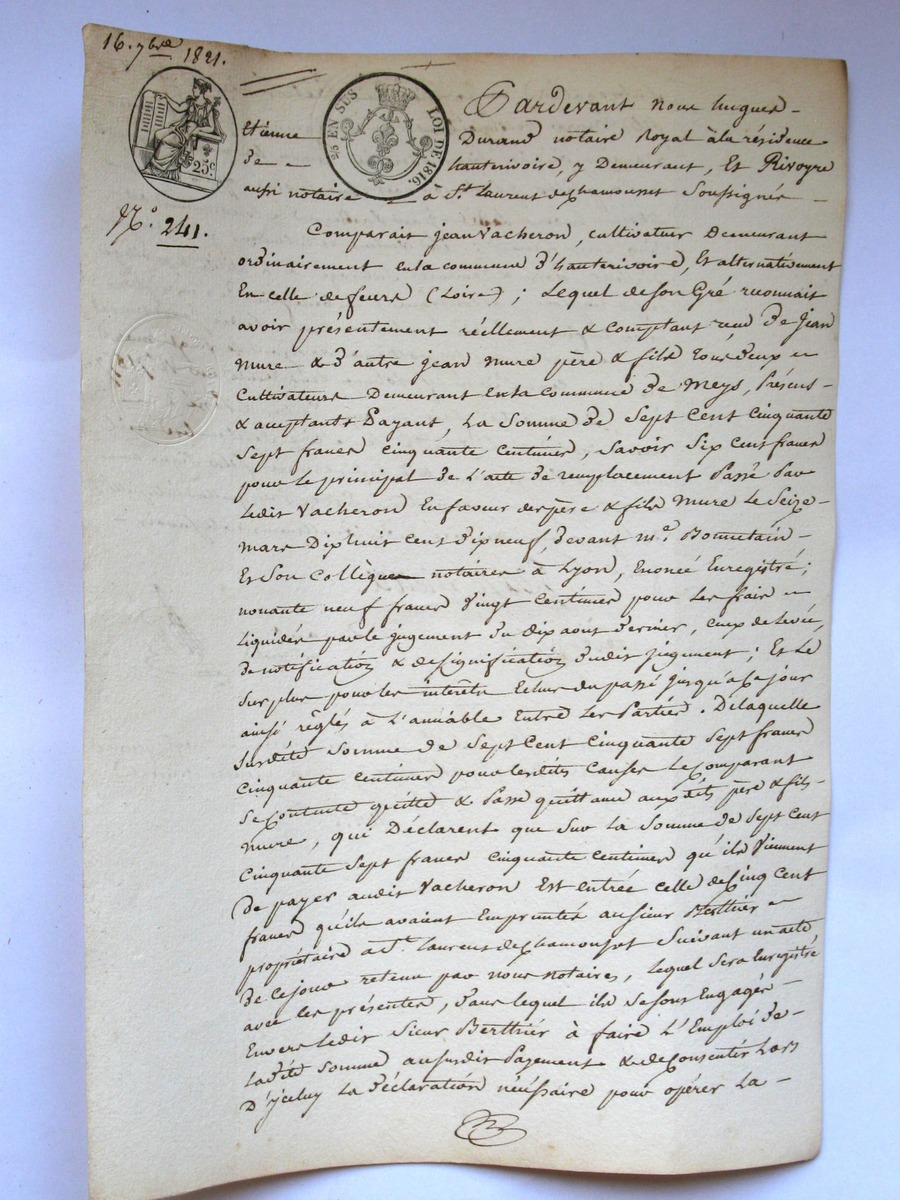 16. 7bre 1821.
25 EN SUS LOI DE 1816.
25c.
N.o 241.
Pardevant nous hugues -
étienne Durand notaire royal à la résidence
de - hauterivoire, y Demeurant, Et Rivoyre
aussi notaire à St. Laurent de chamousset Soussignés -
Comparait jean Vacheron, cultivateur Demeurant
ordinairement en la commune d'hauterivoire, Et alternativement
En celle de feurs (Loire); Lequel de son Gré reconnait
avoir présentement réellement & comptant reçu de Jean
mure & d'autre jean mure père & fils tous deux -
Cultivateurs Demeurant en la commune de Meys, Présens -
& acceptants Payant, La Somme de Sept Cent Cinquante
Sept francs cinquante centimes, Savoir Six cent francs
pour le principal de L'acte de remplacement Passé Par
Ledit Vacheron En faveur des père & fils mure Le Seize -
mars Dix huit cent dix neuf, devant me. Bonnetain -
Et Son Collègue notaires à Lyon, Enoncé Enregistré;
nonante neuf francs Vingt Centimes pour les frais -
Liquidés par le jugement du dix aout dernier, ceux de Levée,
de notification & de signification dudit jugement; Et Le
Surplus pour les intérêts Echus du passé jusqu'à ce jour
ainsi règlés à L'amiable Entre les Parties. De laquelle
Susdite Somme de Sept Cent Cinquante Sept francs
cinquante centimes pour lesdites Causes Le Comparant
Se Contente quitte & Passe quittance auxdits père & fils -
mure, qui Déclarent que Sur La Somme de Sept cent
Cinquante Sept francs cinquante centimes qu'ils Viennent
De payer audit Vacheron Est entrée celle de Cinq Cent
francs qu'ils avaient Empruntés au sieur Berthier -
propriétaire à St. Laurent de chamousset Suivant un acte
de ce jour retenu par nous notaires, lequel sera Enregistré
avec les présentes, dans lequel ils se sont Engagés -
Envers Ledit Sieur Berthier à faire L'Emploi de -
Ladite Somme au susdit Payement & de Consentir Lors
D'ycelui La déclaration nécessaire pour opérer La -